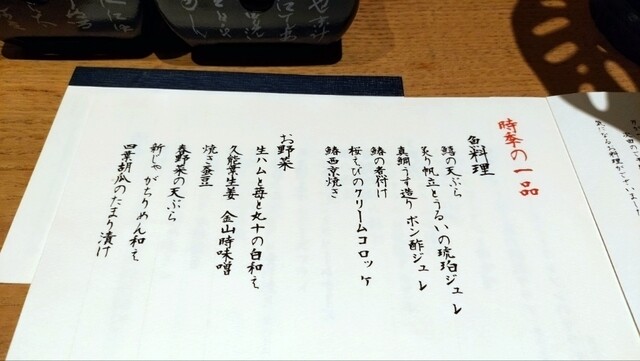 時季の一品
魚料理
鱚の天ぷら
炙り帆立とうるいの琥珀ジュレ
真鯛うす造り ポン酢ジュレ
鰆の煮付け
桜えびのクリームコロッケ
鰆西京焼き
お野菜
生ハムと苺と丸十の白和え
久能葉生姜 金山時味噌
焼き蚕豆
春野菜の天ぷら
新じゃがちりめん和え
四葉胡瓜のたまり漬け